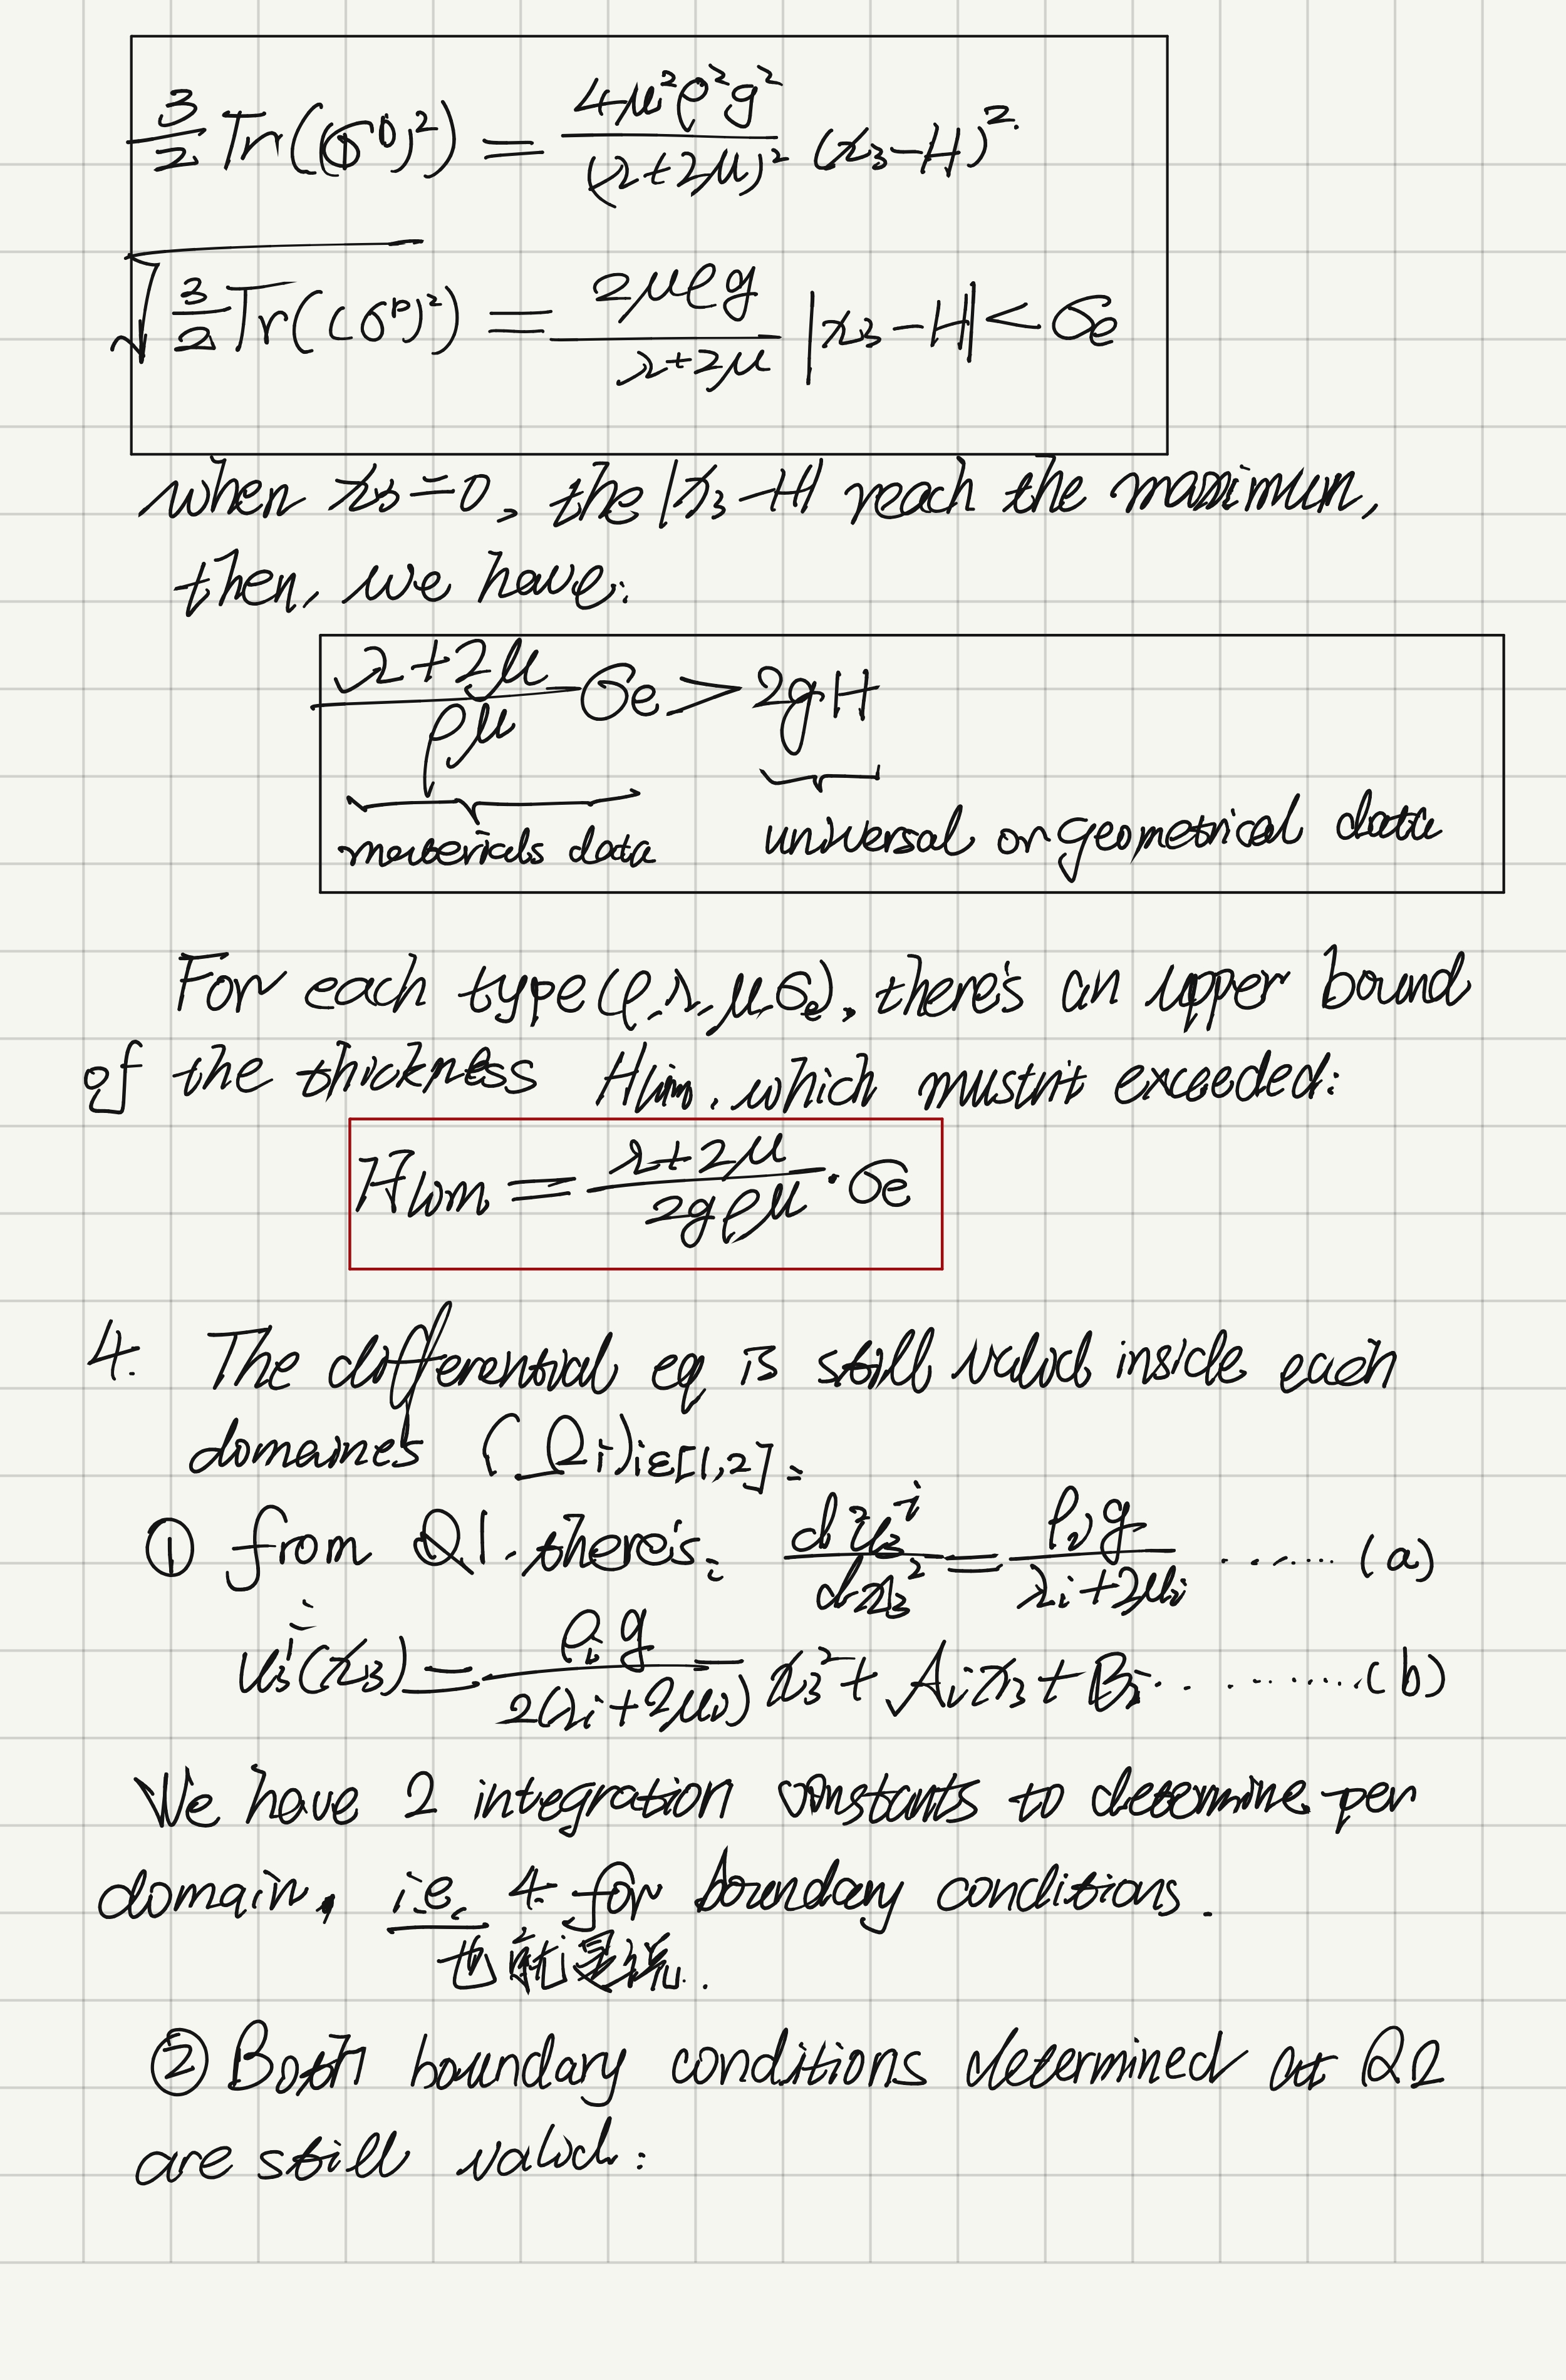 3/2 Tr((σᴰ)²) = 4μ²ρ²g²/(λ+2μ)² (x₃-H)²
√(3/2 Tr((σᴰ)²)) = 2μρg/(λ+2μ) |x₃-H| < σe
when x₃=0, the |x₃-H| reach the maximum,
then, we have:
(λ+2μ)/(ρμ) σe > 2gH
materials data universal or geometrical data
For each type (ρ, λ, μ, σe), there's an upper bound
of the thickness Hlim, which mustn't exceeded:
Hlim = (λ+2μ)/(2gρμ) · σe
4. The differential eq is still valid inside each
domaines (Ωi)i∈[1,2]:
① from Q1. there's: d²u₃ⁱ/dx₃² = ρig/(λi+2μi) ........ (a)
u₃ⁱ(x₃) = ρig/(2(λi+2μi)) x₃² + Aix₃ + Bi ........ (b)
We have 2 integration constants to determine per
domain, i.e. 4 for boundary conditions.
也就是说.
② Both boundary conditions determined at Q2
are still valid: